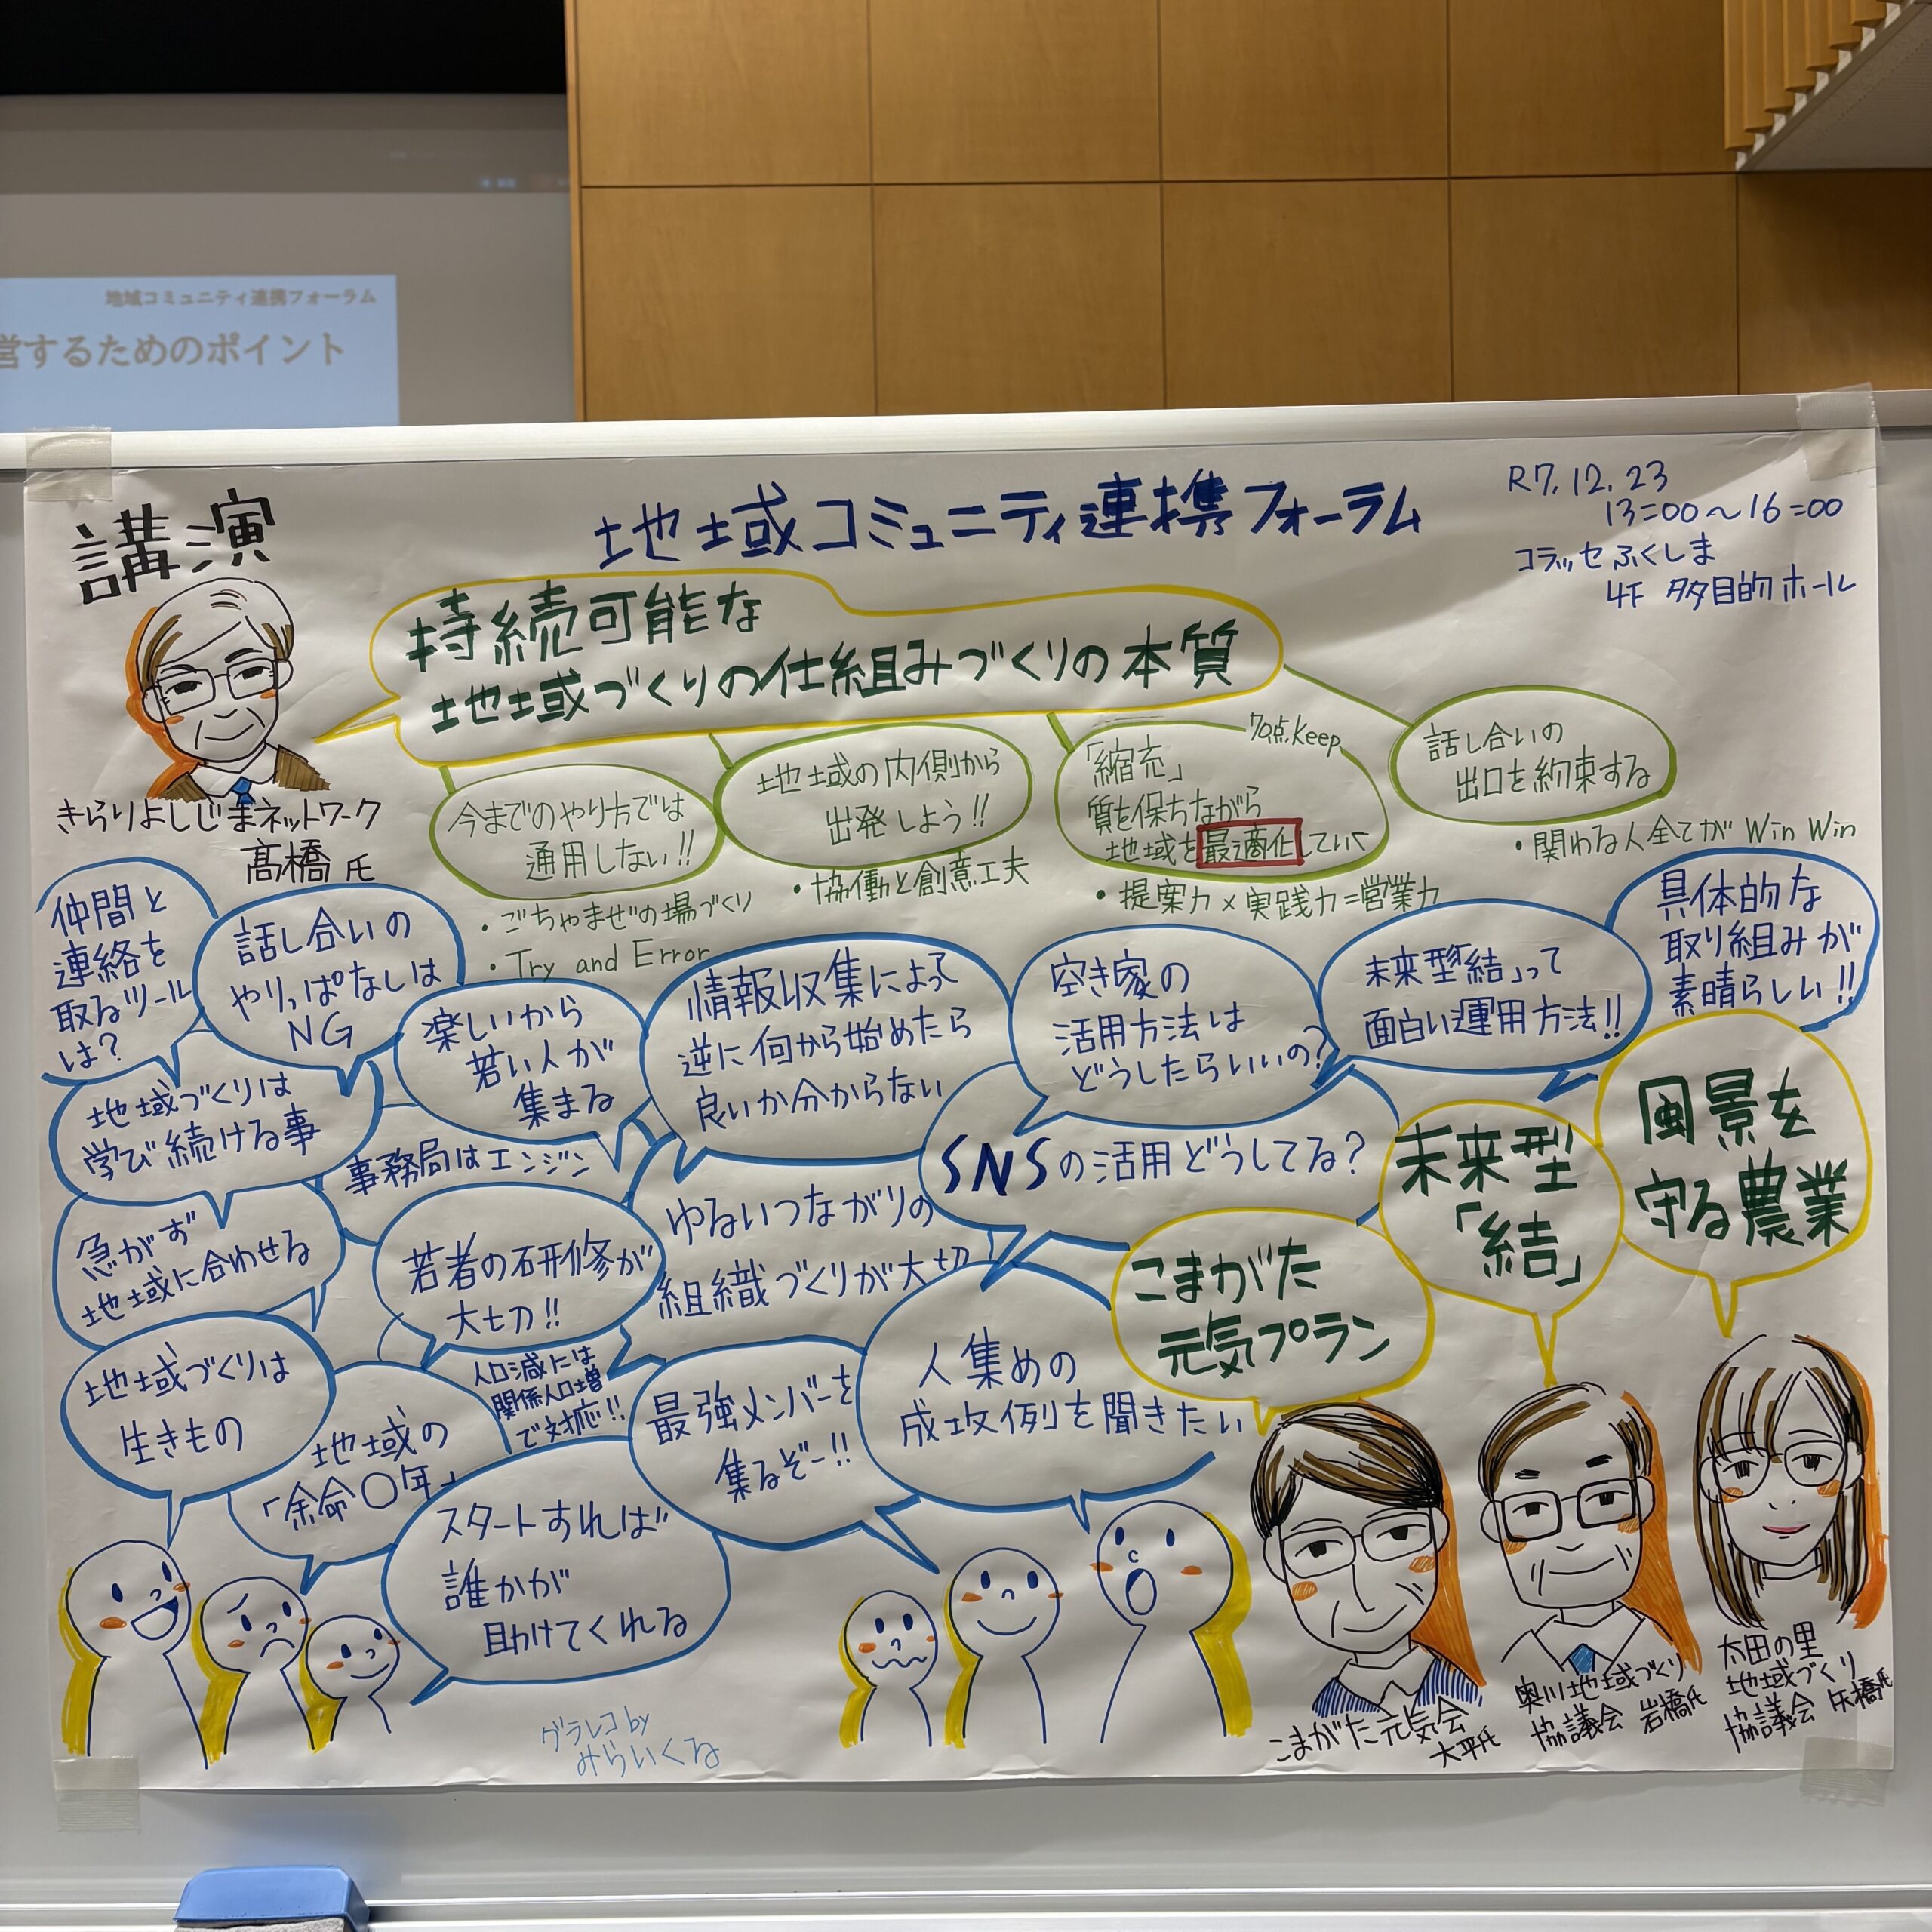 地域コミュニティ連携フォーラム
営するためのポイント
講演
地域コミュニティ連携フォーラム
R7.12.23
13=00〜16=00
コラッセふくしま
4F 多目的ホール
持続可能な
地域づくりの仕組みづくりの本質
きらりよしじまネットワーク
髙橋氏
今までのやり方では
通用しない!!
・ごちゃまぜの場づくり
・Try and Error
地域の内側から
出発しよう!!
・協働と創意工夫
70点.keep
「縮充」
質を保ちながら
地域を最適化していく
・提案力×実践力=営業力
話し合いの
出口を約束する
・関わる人全てがWin Win
仲間と
連絡を
取るツール
は?
話し合いの
やりっぱなしは
NG
楽しいから
若い人が
集まる
情報収集によって
逆に何から始めたら
良いか分からない
空き家の
活用方法は
どうしたらいいの?
未来型「結」って
面白い運用方法!!
具体的な
取り組みが
素晴らしい!!
地域づくりは
学び続ける事
事務局はエンジン
SNSの活用どうしてる?
未来型
「結」
風景を
守る農業
急がず
地域に合わせる
若者の研修が
大切!!
ゆるいつながりの
組織づくりが大切
こまがた
元気プラン
地域づくりは
生きもの
地域の
「余命〇年」
人口減には
関係人口増
で対応!!
最強メンバーを
集るぞー!!
人集めの
成功例を聞きたい
スタートすれば
誰かが
助けてくれる
グラレコby
みらいくる
こまがた元気会
大平氏
奥川地域づくり
協議会 岩橋氏
太田の里
地域づくり
協議会 矢橋氏